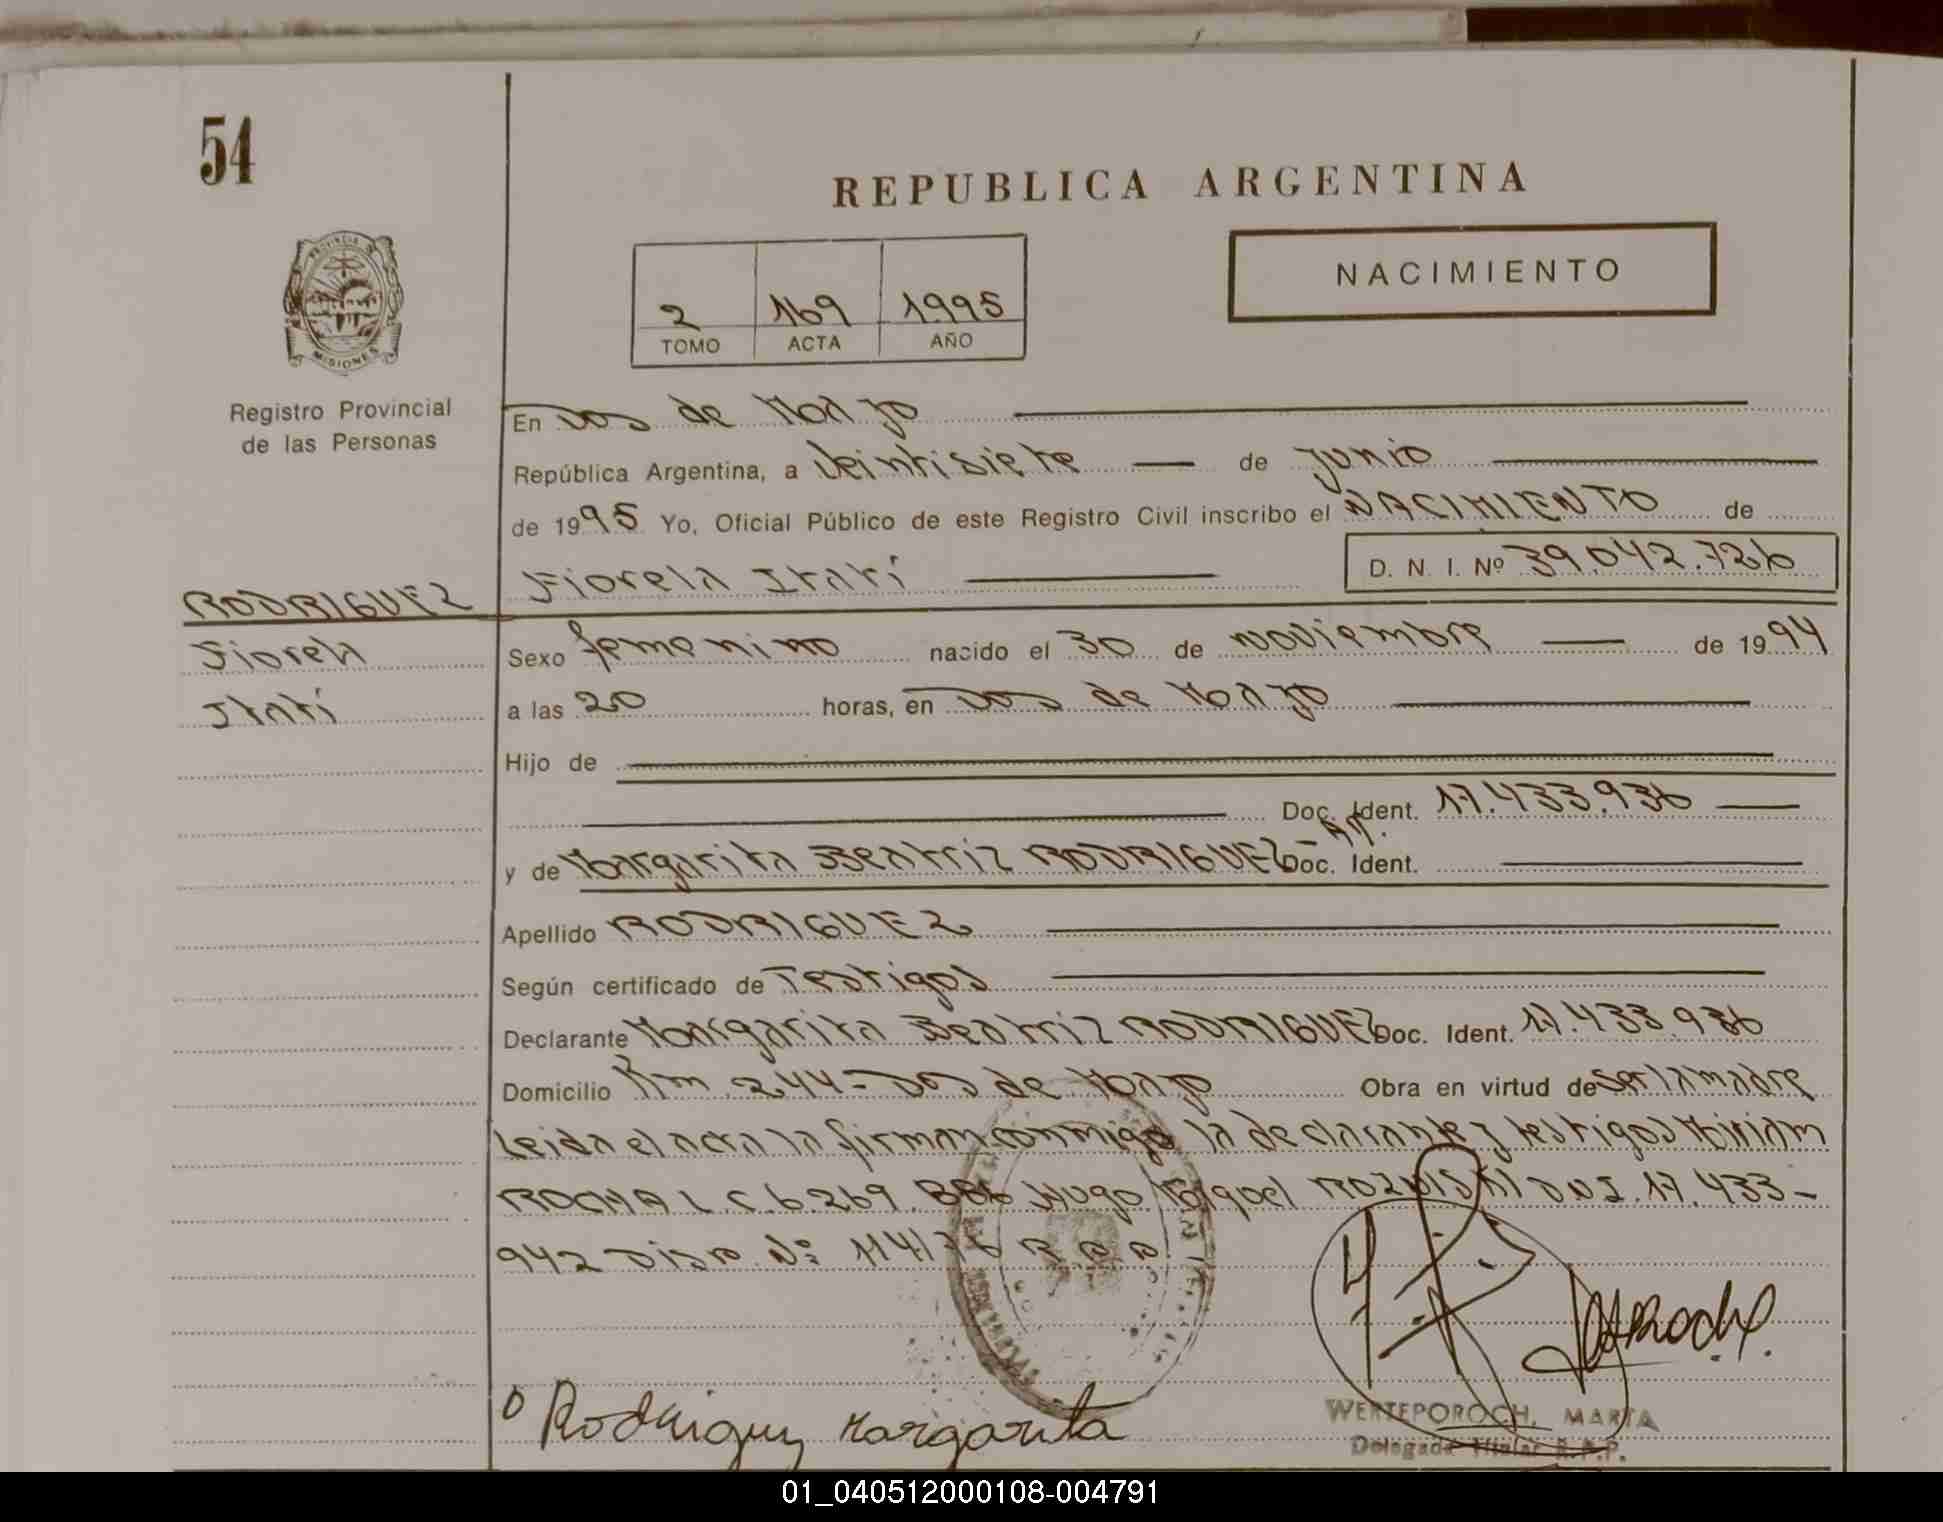 54
REPUBLICA ARGENTINA
PROVINCIA DE
MISIONES
NACIMIENTO
2 169 1995
TOMO ACTA AÑO
Registro Provincial
de las Personas
En Dos de Mayo
República Argentina, a Veintisiete de junio
de 1995 Yo, Oficial Público de este Registro Civil inscribo el NACIMIENTO de
Fiorela Itatí D. N. I. Nº 39.042.726
RODRIGUEZ
Fiorela
Itatí
Sexo femenino nacido el 30 de noviembre de 1994
a las 20 horas, en Dos de Mayo
Hijo de
Doc. Ident. 17.433.936
y de Margarita Beatriz RODRIGUEZ Doc. Ident.
Apellido RODRIGUEZ
Según certificado de Testigos
Declarante Margarita Beatriz RODRIGUEZ Doc. Ident. 17.433.936
Domicilio Km 244 - Dos de Mayo Obra en virtud de ser la madre
Leida el acta la firman conmigo la declarante y testigos Miriam
ROCHA L.C. 6.269.886 Hugo Miguel DNI. 17.433-
942 Disp. Nº 114/76 R.P.P.
Rodriguez Margarita
WERTEPOROCH, MARTA
Delegada Titular R.P.P.
01_040512000108-004791